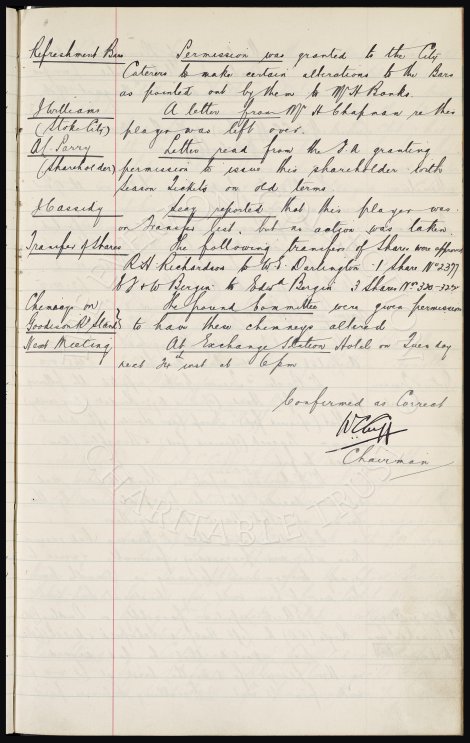 Refreshment Bars Permission was granted to the City
Caterers to make certain alterations to the Bars
as pointed out by them to Mr H Banks.
J Williams A letter from Mr H Chapman re this
(Stoke City) player was left over.
A.E. Parry Letter read from the F.A granting
(Shareholder) permission to issue this shareholder with
season tickets on old terms.
J Cassidy Secy reported that this player was
on Transfer list, but no action was taken.
Transfer of Shares The following transfer of Shares were approved
R.H Richardson to W.E. Darlington 1 Share No 2377
& W Bergin to Edwd Bergin 3 Shares No 320-322
Chimneys on The Ground Committee were given permission
Goodison Rd Stand } to have these chimneys altered.
Next Meeting At Exchange Station Hotel on Tuesday
next 24th inst at 6 pm
Confirmed as Correct
W.C. Cuff
Chairman
CHARITABLE TRUST